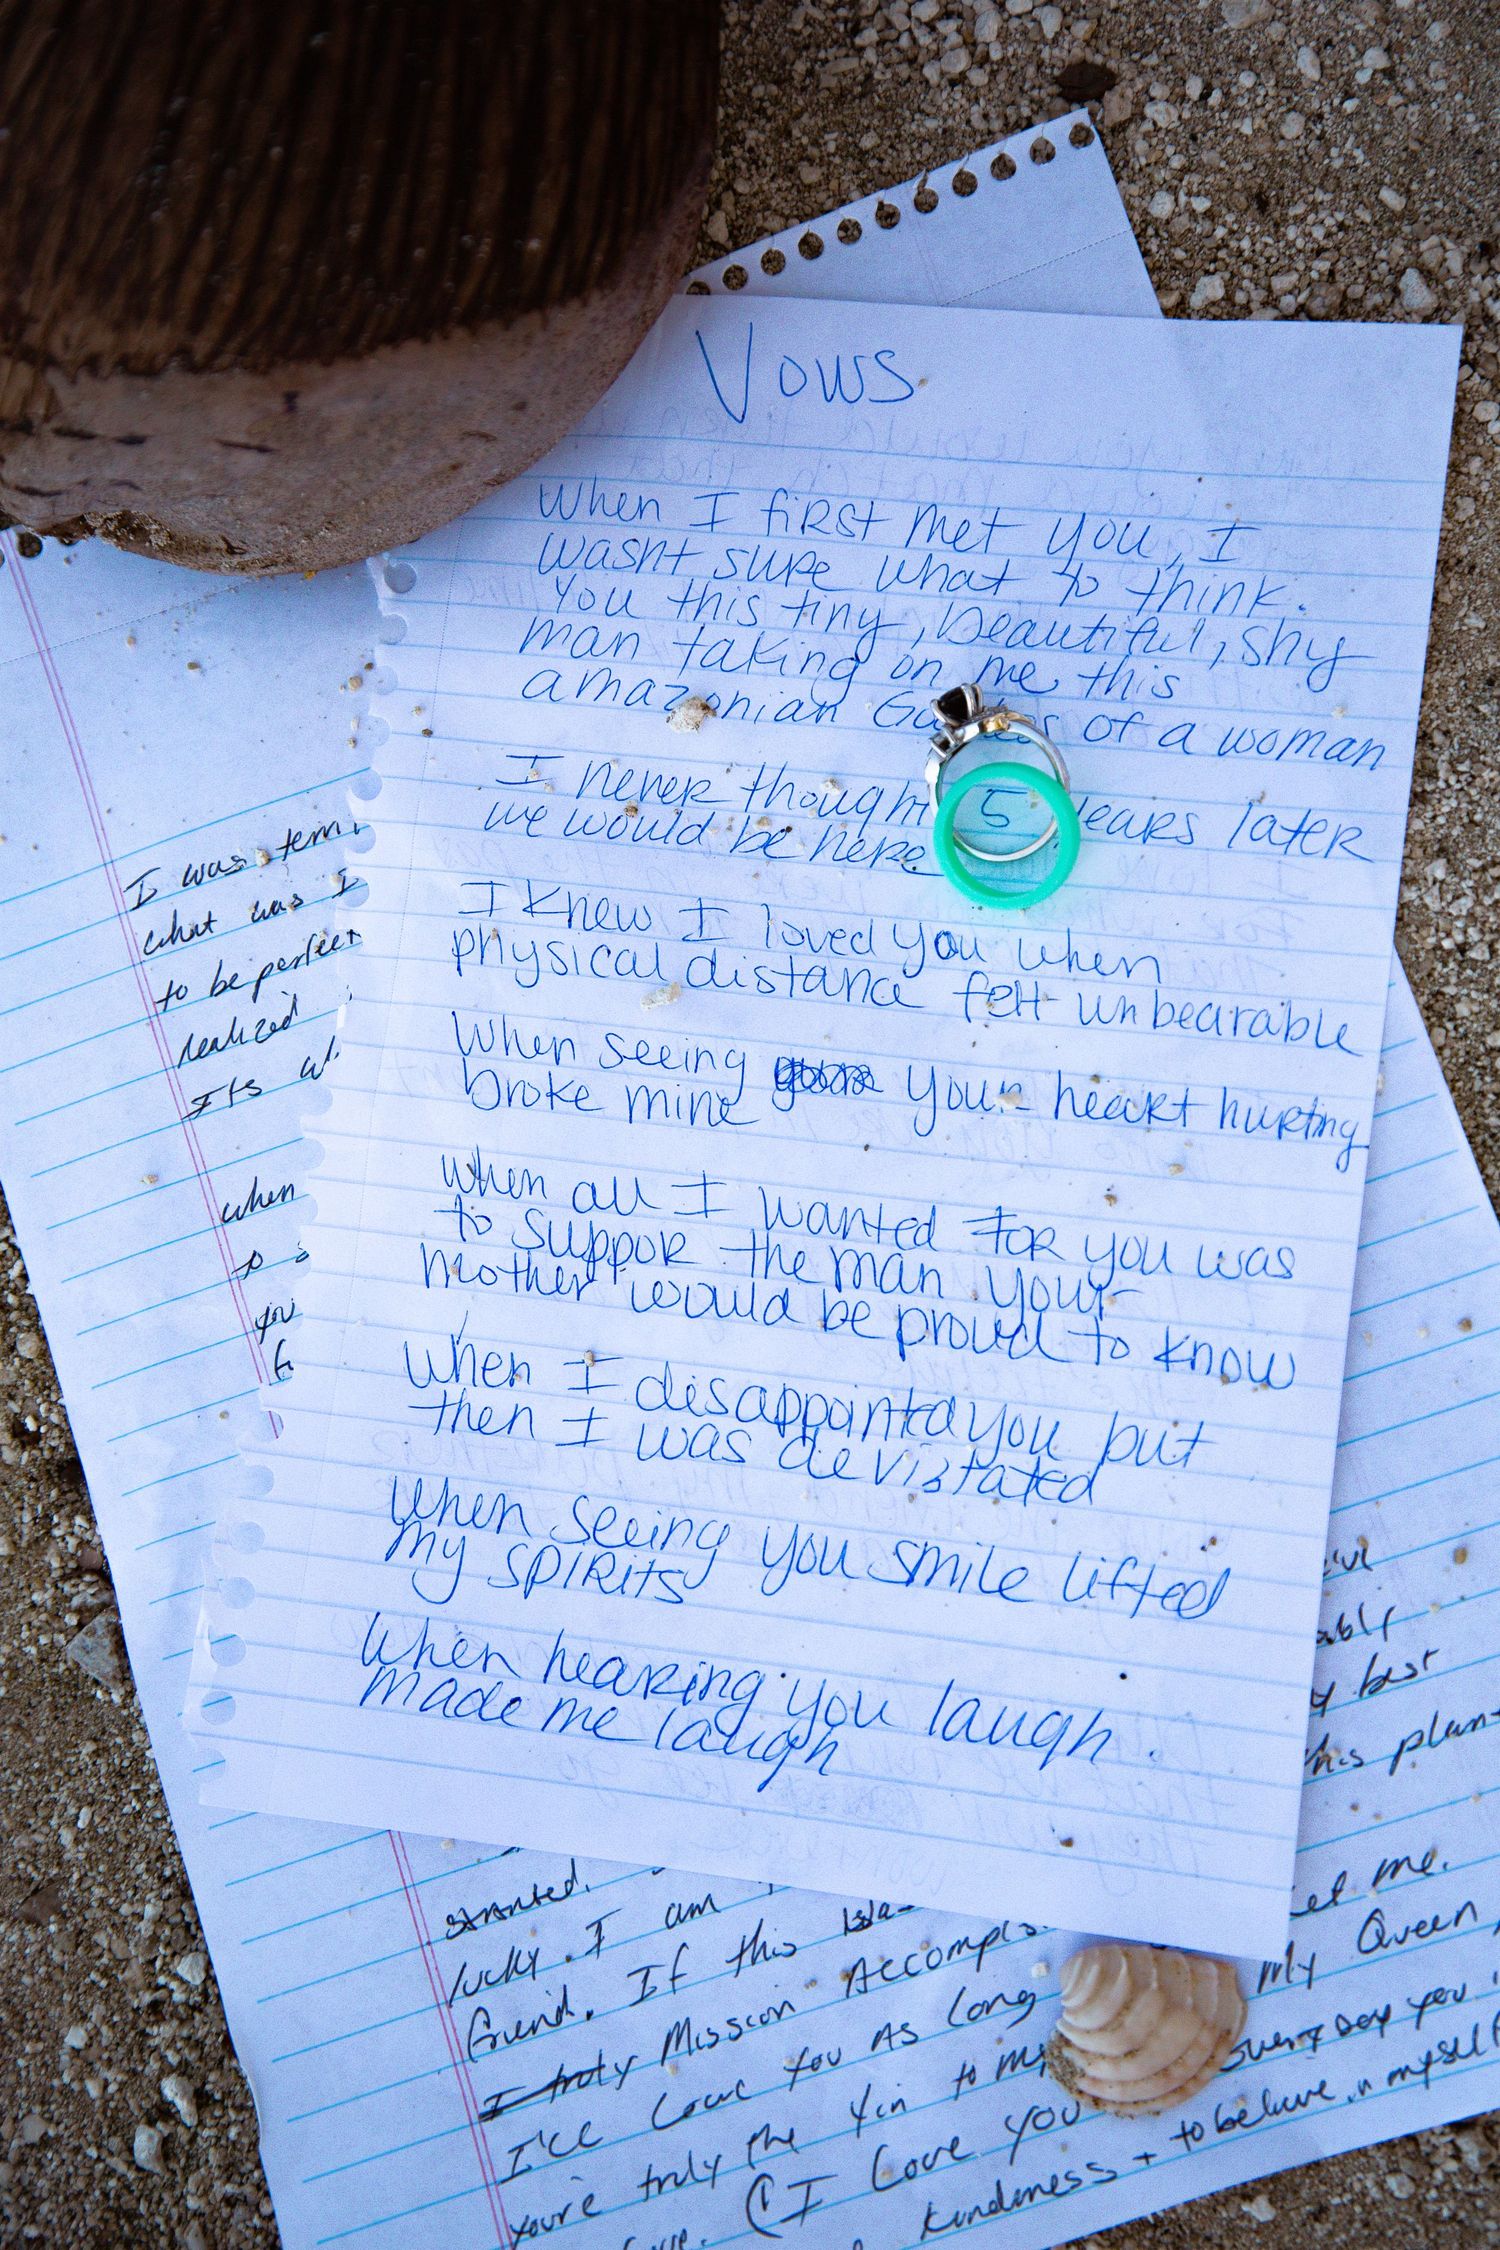 Vows
When I first met you, I
wasnt sure what to think.
You this tiny, beautiful, shy
man taking on me this
amazonian of a woman
I never thought 5 years later
we would be here.
I knew I loved you when
physical distance felt unbearable
When seeing your heart hurting
broke mine
When all I wanted for you was
to suppor the man your
mother would be proud to know
When I disappointed you but
then I was devistated
When seeing you smile lifted
my spirits
When hearing you laugh.
made me laugh
I was
what was I
to be perfect
realized
Its
when
you
my best
this
me.
lucky. I am
My Queen,
friend. If this
I truly Mission
I'll Love You As long
every day you
you're truly the Yin to my
(I Love you
kindness + to believe in myself